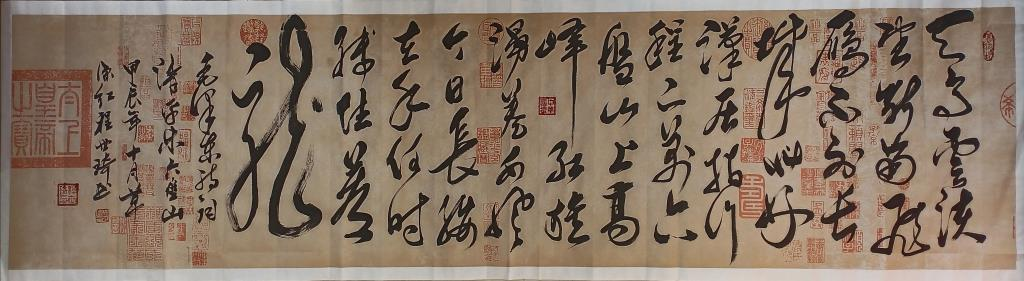 天高雲淡
望斷南飛
雁不到長
城非好
漢屈指行
程二萬六
盤山上高
峰紅旗
漫卷西風
今日長纓
在手何時
縛住蒼
龍
毛澤東詩詞
清平樂六盤山
甲辰年十月草
程世書
太上皇帝之寶